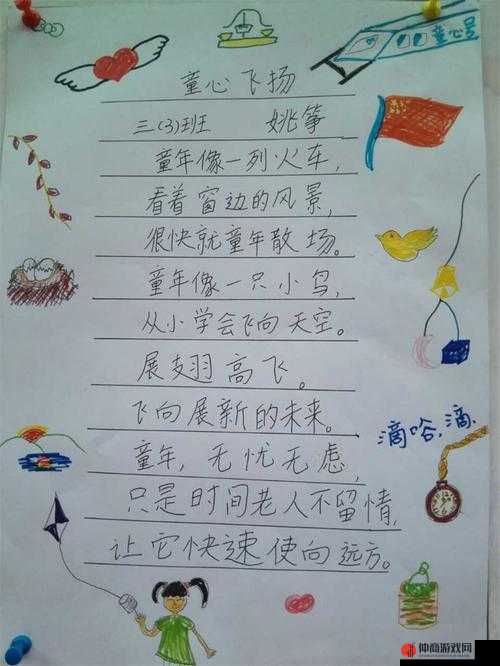 童心号
童心飞扬
三(3)班 姚筝
童年像一列火车,
看着窗边的风景,
很快就童年散场。
童年像一只小鸟,
从小学会飞向天空。
展翅高飞。
飞向展新的未来。
童年,无忧无虑,
只是时间老人不留情,
让它快速使向远方。
滴哈,滴.
仲商游戏网